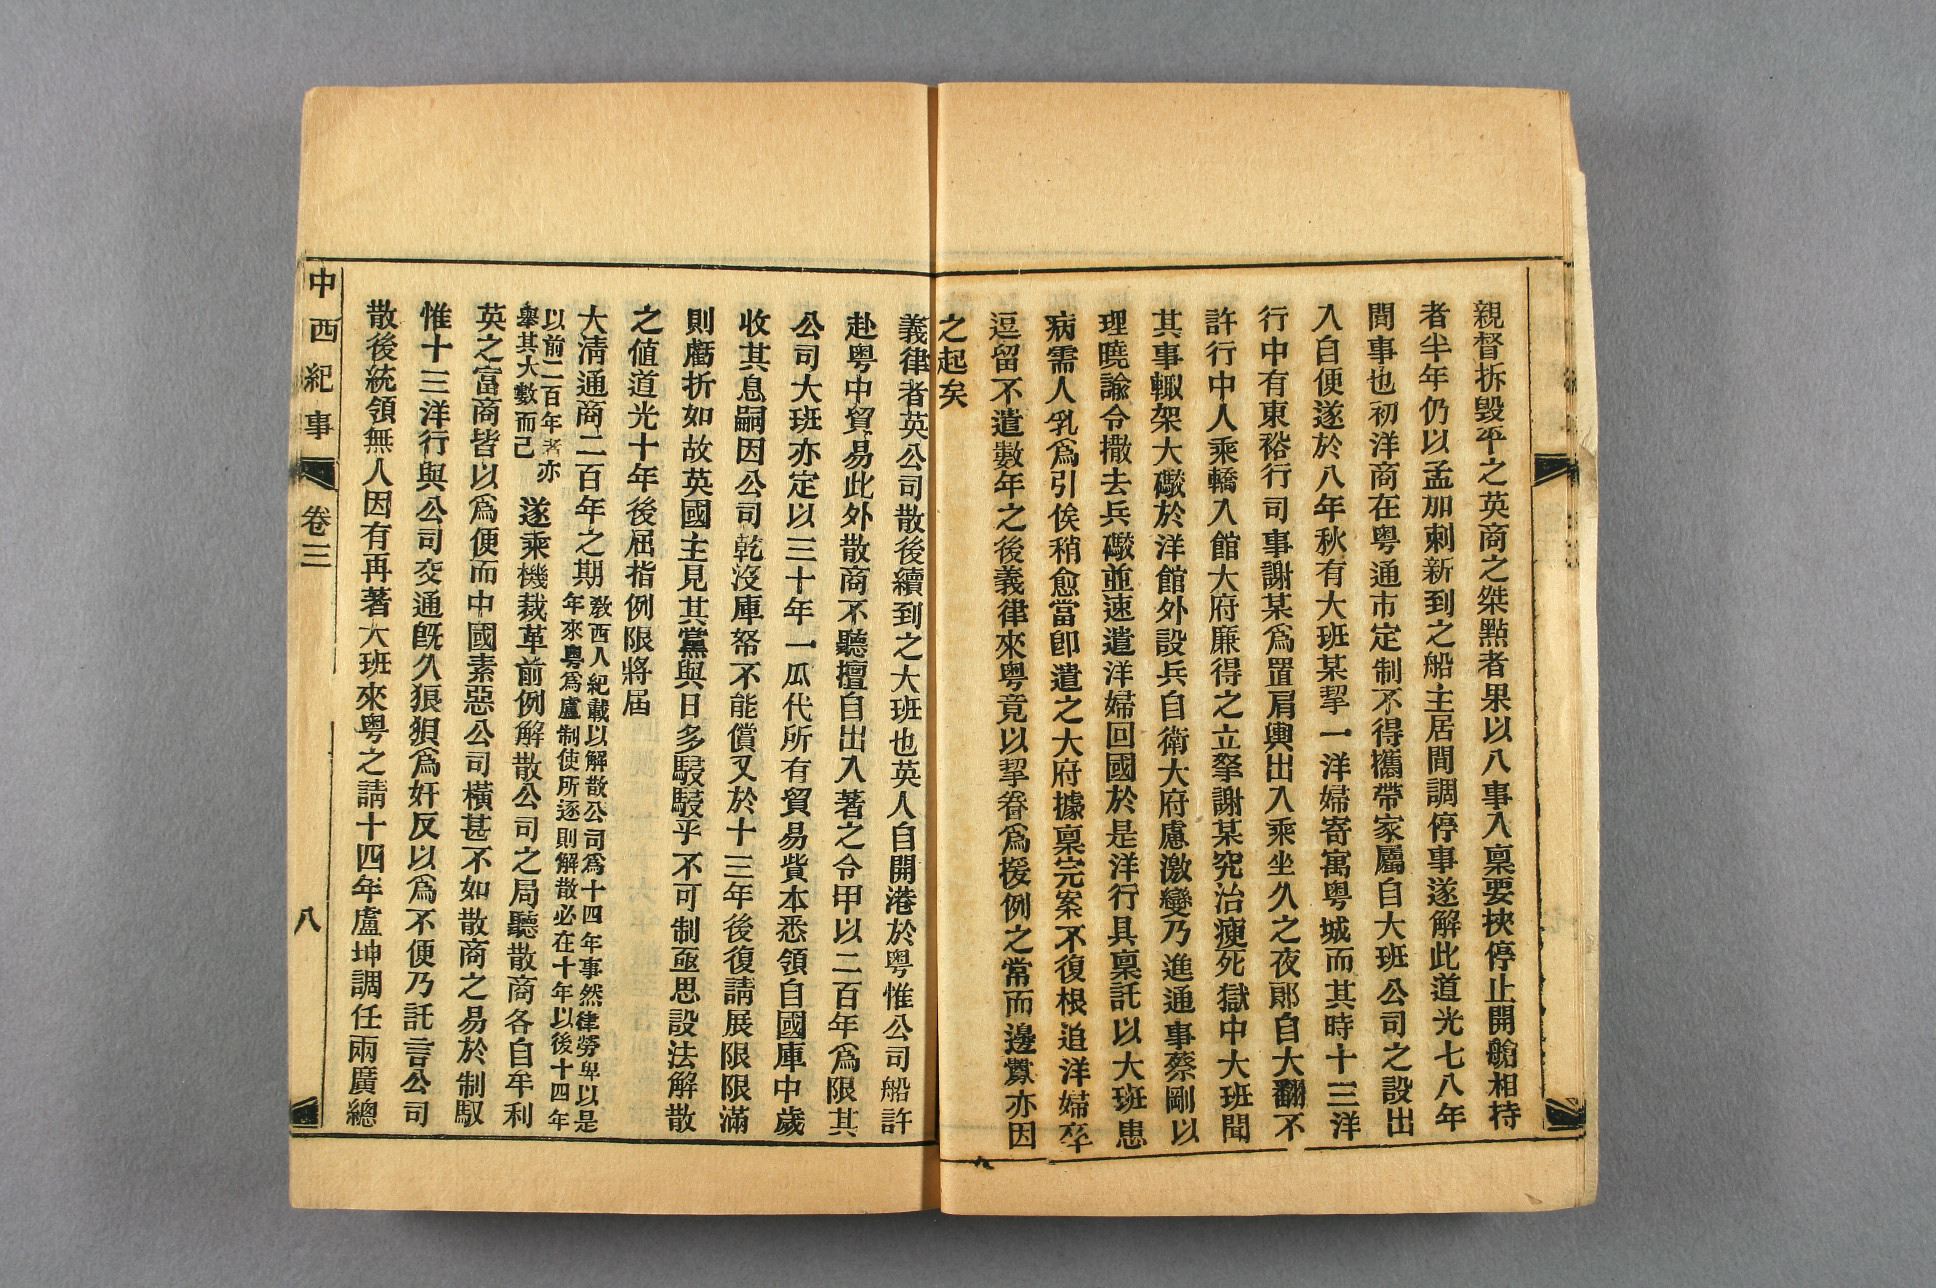 親督拆毀平之英商之桀黠者果以八事入稟要挾停止開艙相持
者半年仍以孟加剌新到之船主居間調停事遂解此道光七八年
間事也初洋商在粵通市定制不得攜帶家屬自大班公司之設出
入自便遂於八年秋有大班某挈一洋婦寄寓粵城而其時十三洋
行中有東裕行司事謝某爲置肩輿出入乘坐久之夜郎自大翻不
許行中人乘轎入館大府廉得之立拏謝某究治瘐死獄中大班聞
其事輙架大礮於洋館外設兵自衛大府慮激變乃進通事蔡剛以
理曉諭令撤去兵礮並速遣洋婦回國於是洋行具稟託以大班患
病需人乳爲引俟稍愈當卽遣之大府據稟完案不復根追洋婦卒
逗留不遣數年之後義律來粵竟以挈眷爲援例之常而邊釁亦因
之起矣
義律者英公司散後續到之大班也英人自開港於粵惟公司船許
赴粵中貿易此外散商不聽擅自出入著之令甲以二百年爲限其
公司大班亦定以三十年一瓜代所有貿易貲本悉領自國庫中歲
收其息嗣因公司乾沒庫帑不能償又於十三年後復請展限限滿
則虧折如故英國主見其黨與日多駸駸乎不可制亟思設法解散
之値道光十年後屈指例限將屆
大淸通商二百年之期敎西人紀載以解散公司爲十四年事然律勞卑以是
年來粵爲盧制使所逐則解散必在十年以後十四年
以前二百年者亦
舉其大數而已遂乘機裁革前例解散公司之局聽散商各自牟利
英之富商皆以爲便而中國素惡公司橫甚不如散商之易於制馭
惟十三洋行與公司交通旣久狼狽爲奸反以爲不便乃託言公司
散後統領無人因有再著大班來粵之請十四年盧坤調任兩廣總
中西紀事 卷三 八